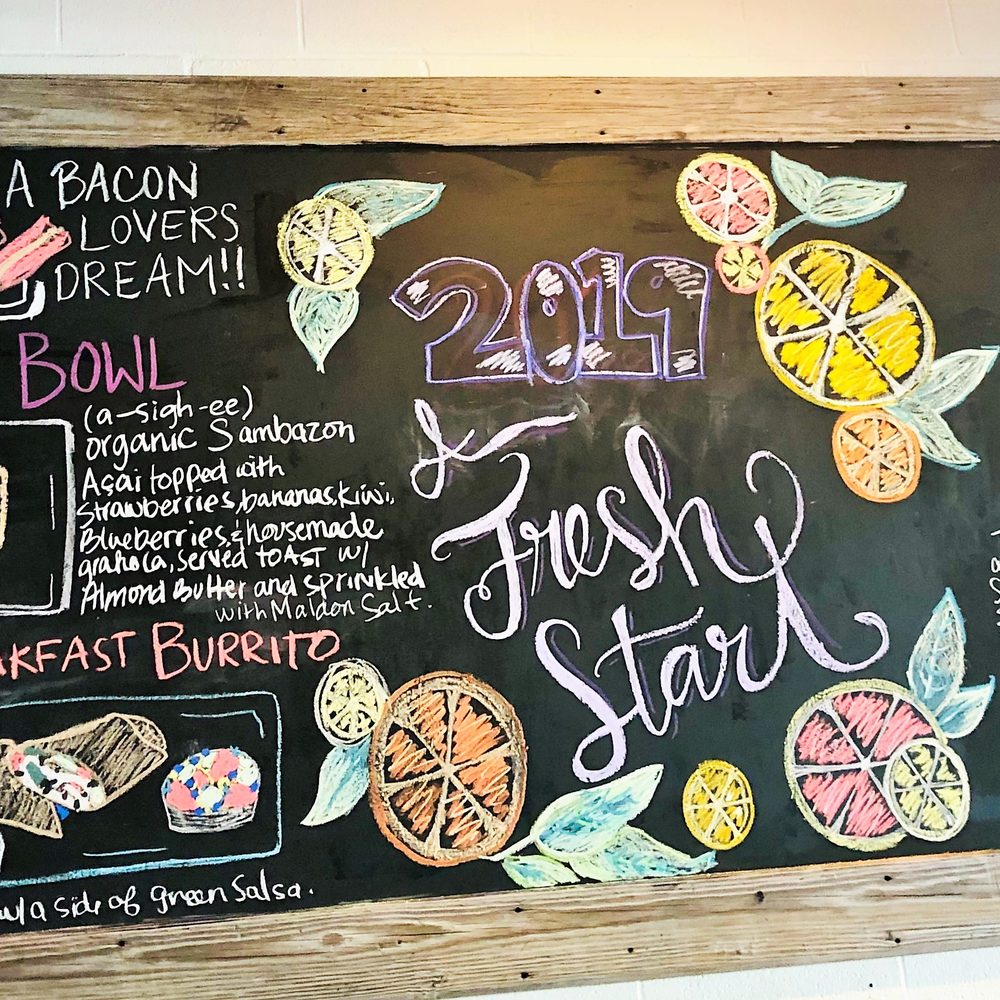 A BACON
LOVERS
DREAM!!
BOWL
(a-sigh-ee)
organic Sambazon
Açai topped with
Strawberries, bananas, kiwi,
Blueberries, & housemade
granola, served toAST w/
Almond Butter and sprinkled
with Maldon Salt.
AKFAST BURRITO
w/a side of green Salsa.
2019
Fresh
Start